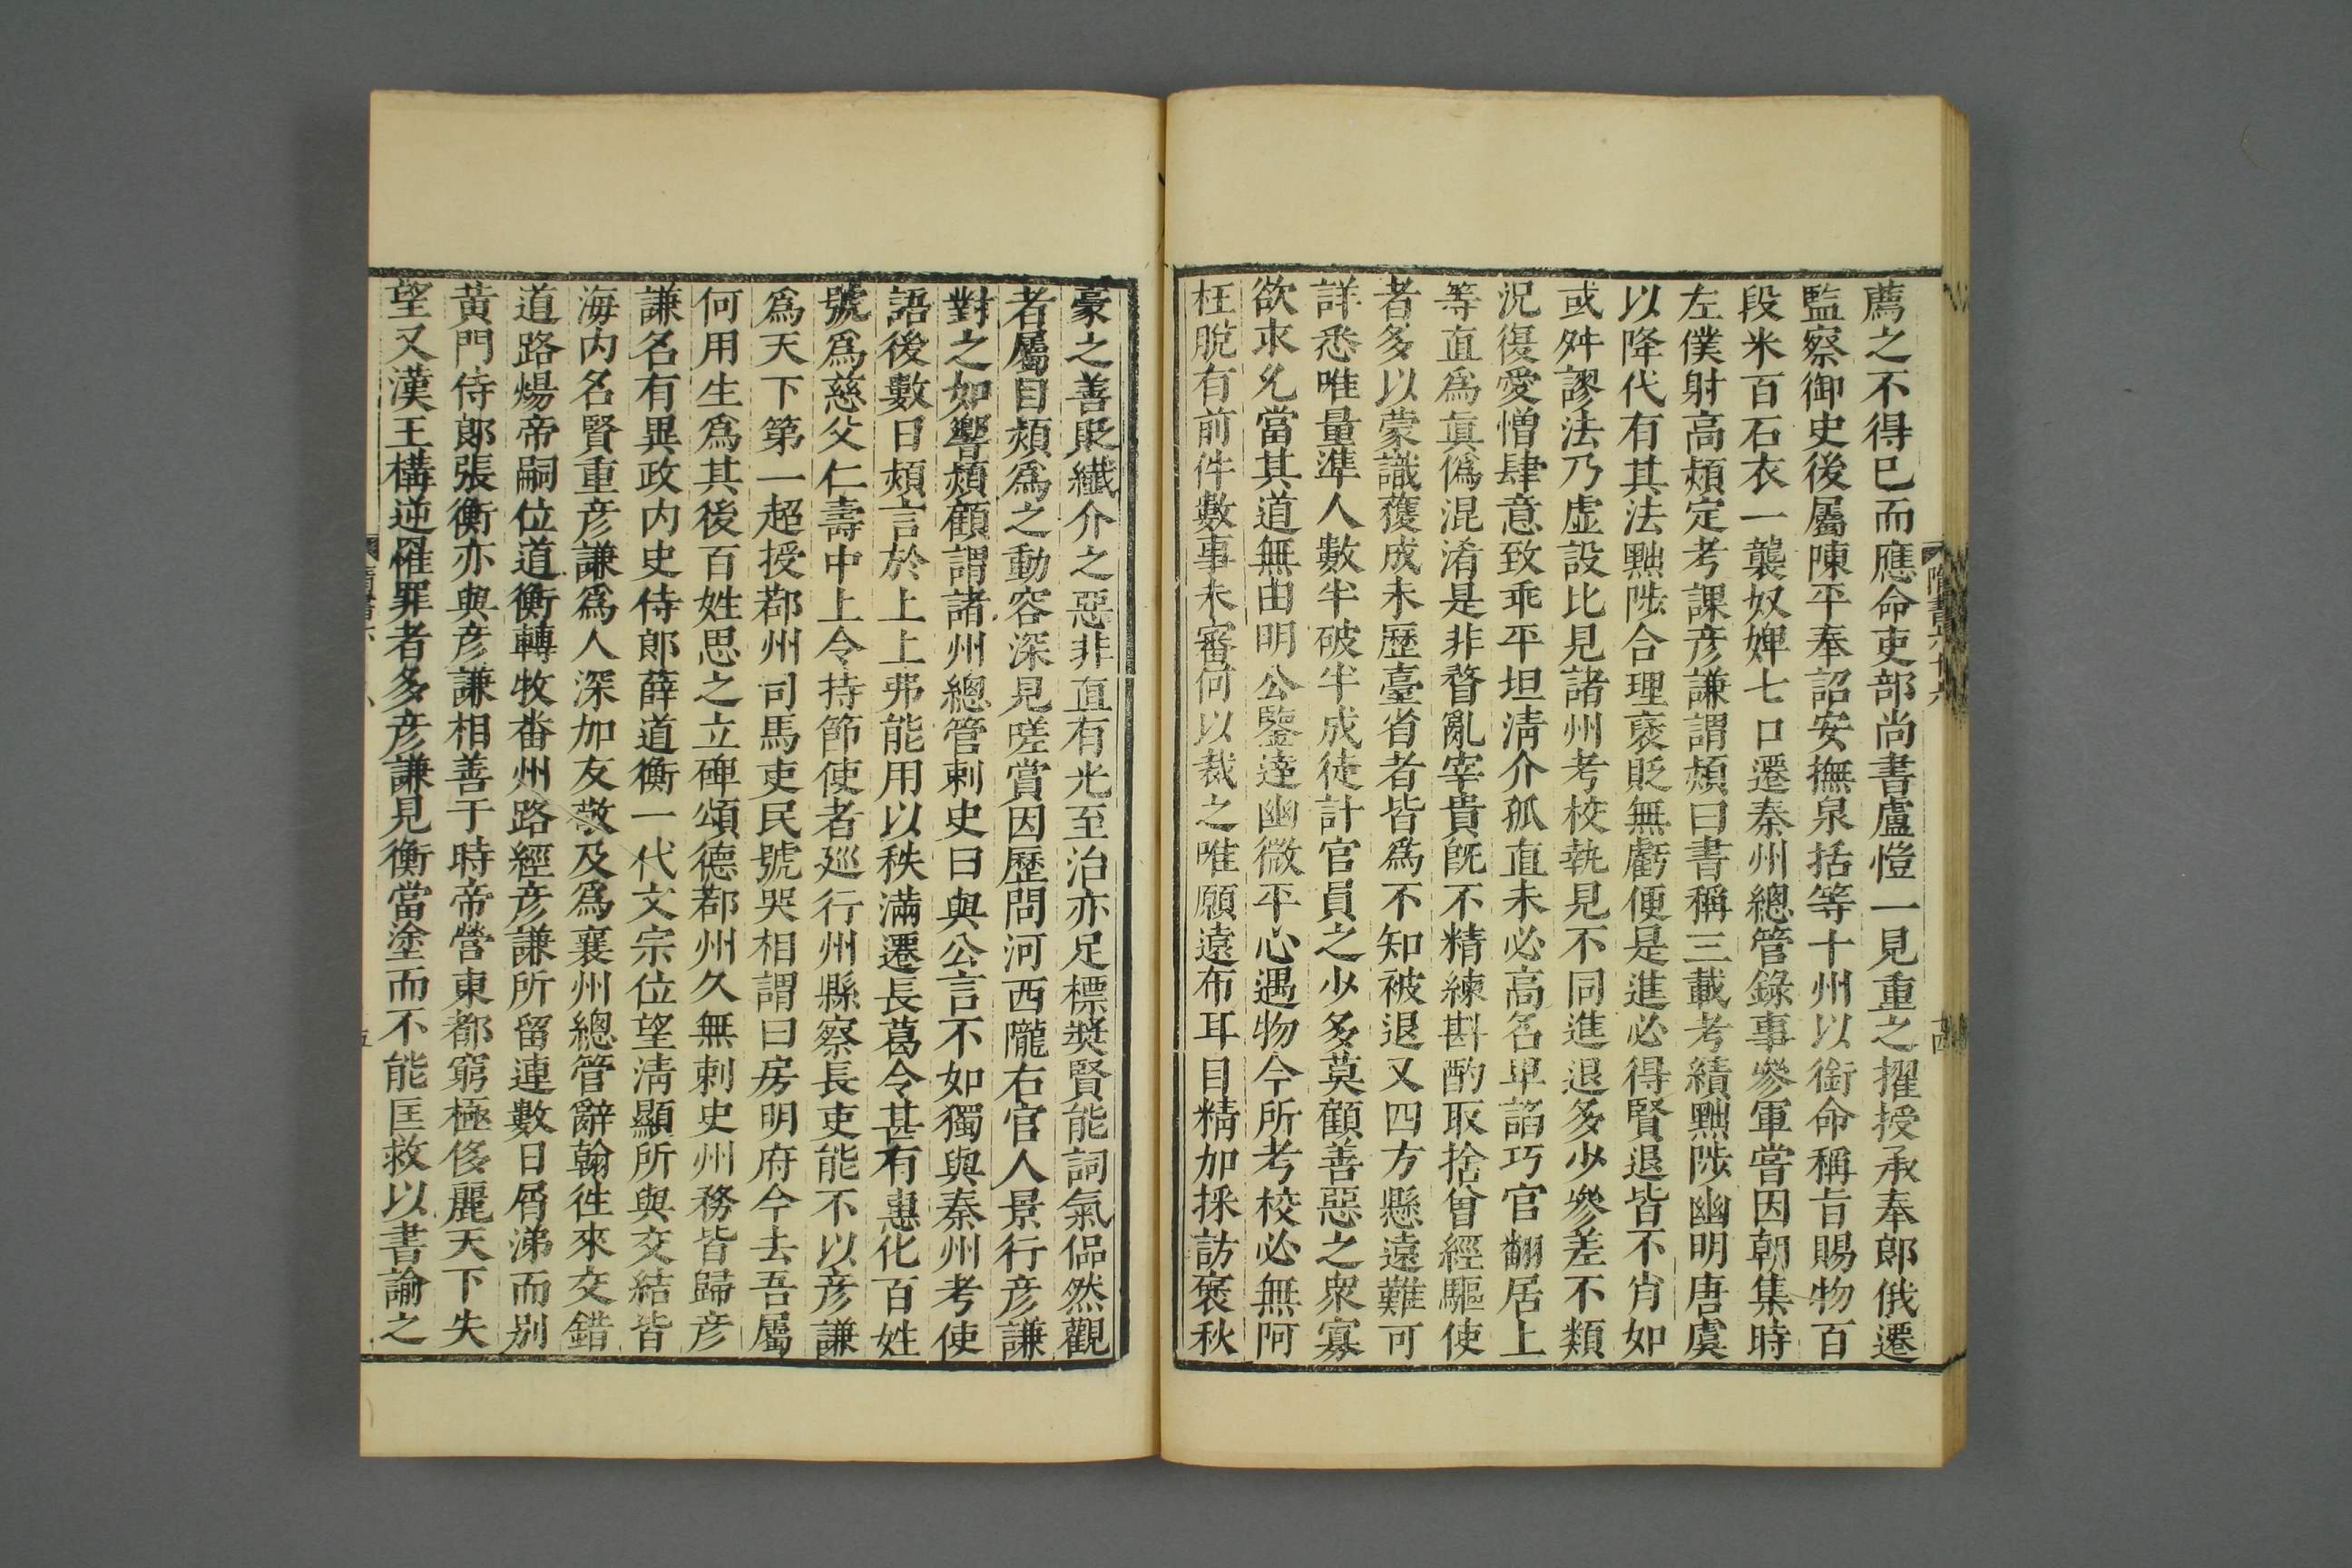 薦之不得已而應命吏部尚書盧愷一見重之擢授承奉郎俄遷
監察御史後屬陳平奉詔安撫泉括等十州以銜命稱旨賜物百
段米百石衣一襲奴婢七口遷秦州總管錄事參軍嘗因朝集時
左僕射高熲定考課彦謙謂熲曰書稱三載考績黜陟幽明唐虞
以降代有其法黜陟合理褒貶無虧便是進必得賢退皆不肖如
或舛謬法乃虛設比見諸州考校執見不同進退多少參差不類
況復愛憎肆意致乖平坦清介孤直未必高名卑諂巧官翻居上
等直爲眞僞混淆是非瞀亂宰貴旣不精練斟酌取捨曾經驅使
者多以蒙識獲成未歷臺省者皆爲不知被退又四方懸遠難可
詳悉唯量準人數半破半成徒計官員之少多莫顧善惡之衆寡
欲求允當其道無由明公鑒達幽微平心遇物今所考校必無阿
枉脫有前件數事未審何以裁之唯願遠布耳目精加採訪褒秋
豪之善貶纖介之惡非直有光至治亦足標奬賢能詞氣侃然觀
者屬目熲爲之動容深見嗟賞因歷問河西隴右官人景行彦謙
對之如響熲顧謂諸州總管刺史曰與公言不如獨與秦州考使
語後數日熲言於上上弗能用以秩滿遷長葛令甚有惠化百姓
號爲慈父仁壽中上令持節使者廵行州縣察長吏能不以彦謙
爲天下第一超授鄀州司馬吏民號哭相謂曰房明府今去吾屬
何用生爲其後百姓思之立碑頌德鄀州久無刺史州務皆歸彦
謙名有異政内史侍郎薛道衡一代文宗位望淸顯所與交結皆
海内名賢重彦謙爲人深加友敬及爲襄州總管辭翰往來交錯
道路煬帝嗣位道衡轉牧番州路經彦謙所留連數日屑涕而别
黃門侍郎張衡亦與彦謙相善于時帝營東都窮極侈麗天下失
望又漢王構逆罹罪者多彦謙見衡當塗而不能匡救以書諭之
隋書六十六
十四